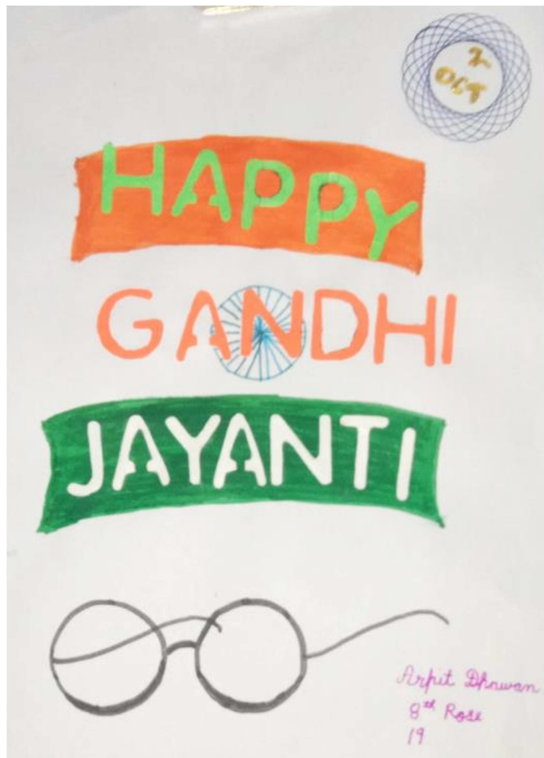 2
OCT
HAPPY
GANDHI
JAYANTI
Arpit Dhawan
8th Rose
19